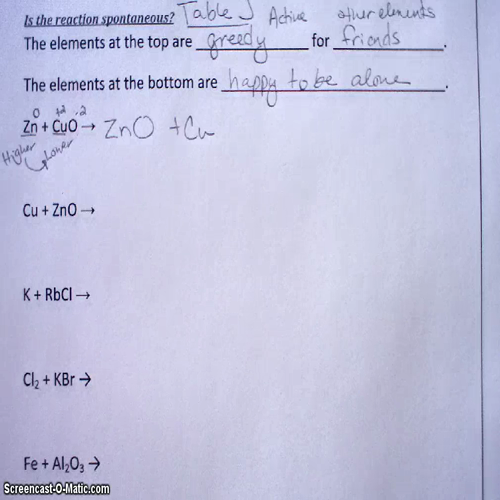 Is the reaction spontaneous? Table J Active other elements
The elements at the top are greedy for friends.
The elements at the bottom are happy to be alone.
0 +2 -2
Zn + CuO → ZnO + Cu
Higher Lower
Cu + ZnO →
K + RbCl →
Cl₂ + KBr →
Fe + Al₂O₃ →
Screencast-O-Matic.com